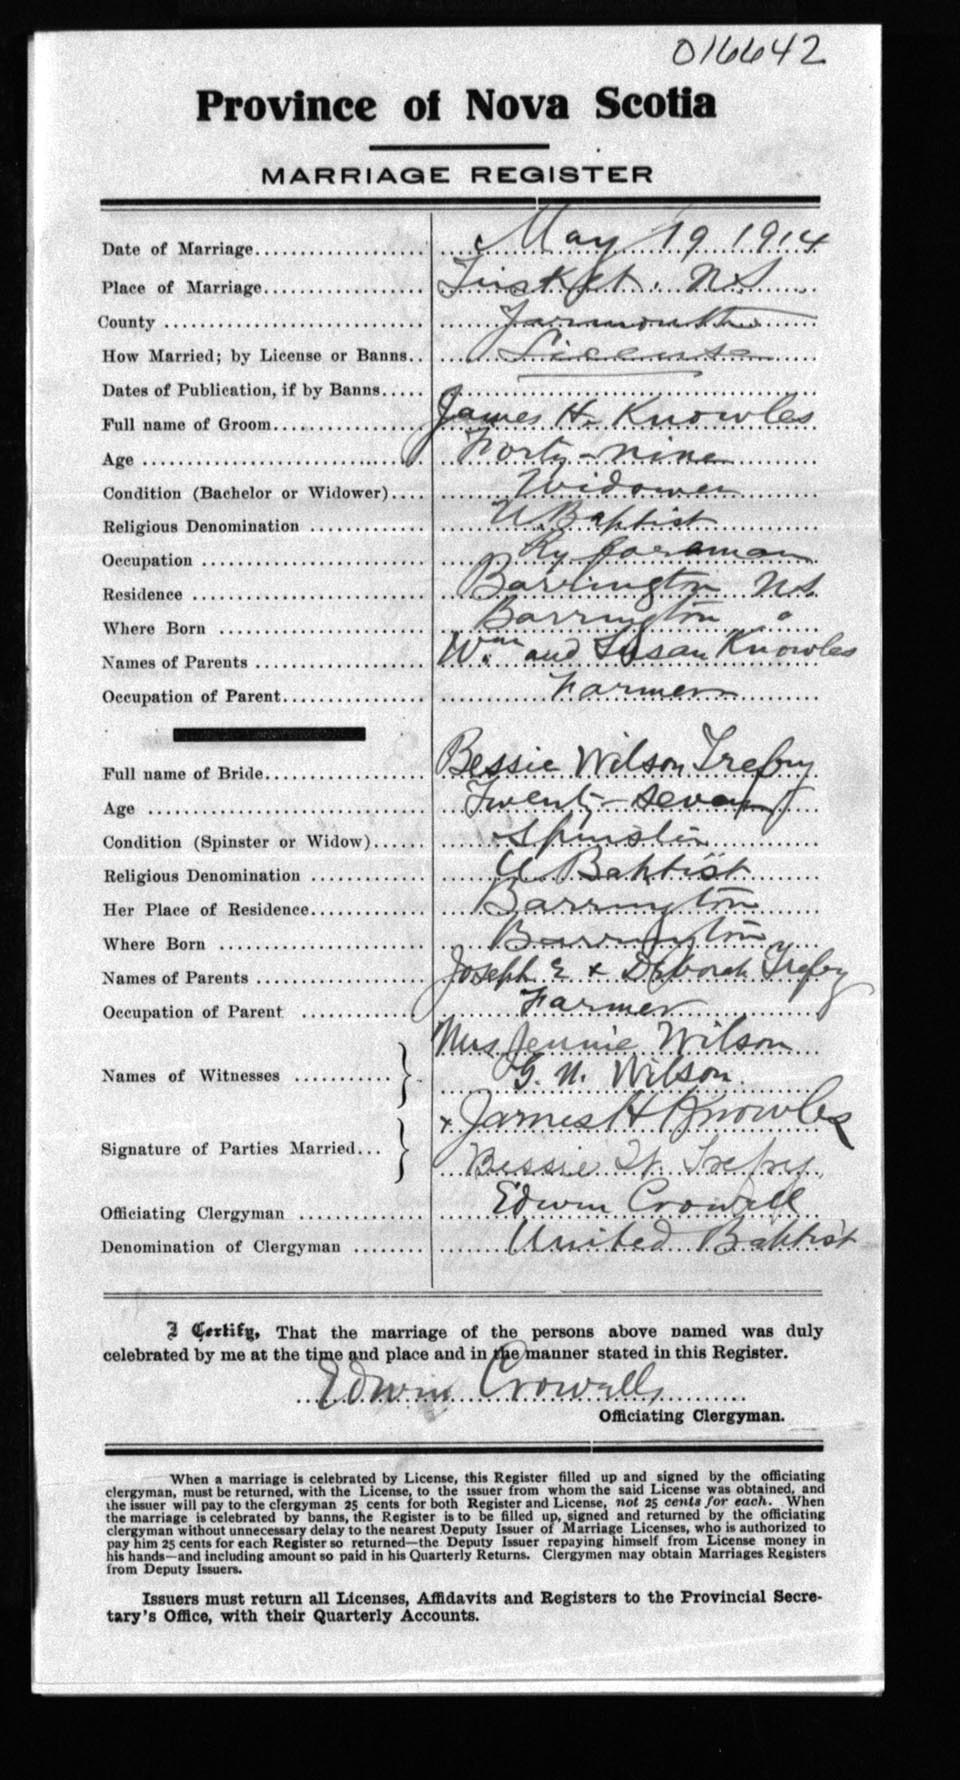 016642
Province of Nova Scotia
MARRIAGE REGISTER
Date of Marriage May 19 1914
Place of Marriage Tusket. N.S.
County Yarmouth
How Married; by License or Banns License
Dates of Publication, if by Banns
Full name of Groom James H. Knowles
Age Forty-nine
Condition (Bachelor or Widower) Widower
Religious Denomination U. Baptist
Occupation Ry foreman
Residence Barrington N.S.
Where Born Barrington "
Names of Parents Wm. and Susan Knowles
Occupation of Parent Farmer
Full name of Bride Bessie Wilson Trefry
Age Twenty-seven
Condition (Spinster or Widow) Spinster
Religious Denomination U. Baptist
Her Place of Residence Barrington
Where Born Barrington
Names of Parents Joseph E & Deborah Trefry
Occupation of Parent Farmer
Mrs Jennie Wilson
Names of Witnesses G. N. Wilson.
x James H Knowles
Signature of Parties Married
Bessie W. Trefry
Officiating Clergyman Edwin Crowell
Denomination of Clergyman United Baptist
I Certify, That the marriage of the persons above named was duly
celebrated by me at the time and place and in the manner stated in this Register.
Edwin Crowell
Officiating Clergyman.
When a marriage is celebrated by License, this Register filled up and signed by the officiating
clergyman, must be returned, with the License, to the issuer from whom the said License was obtained, and
the issuer will pay to the clergyman 25 cents for both Register and License, not 25 cents for each. When
the marriage is celebrated by banns, the Register is to be filled up, signed and returned by the officiating
clergyman without unnecessary delay to the nearest Deputy Issuer of Marriage Licenses, who is authorized to
pay him 25 cents for each Register so returned—the Deputy Issuer repaying himself from License money in
his hands—and including amount so paid in his Quarterly Returns. Clergymen may obtain Marriages Registers
from Deputy Issuers.
Issuers must return all Licenses, Affidavits and Registers to the Provincial Secre-
tary's Office, with their Quarterly Accounts.